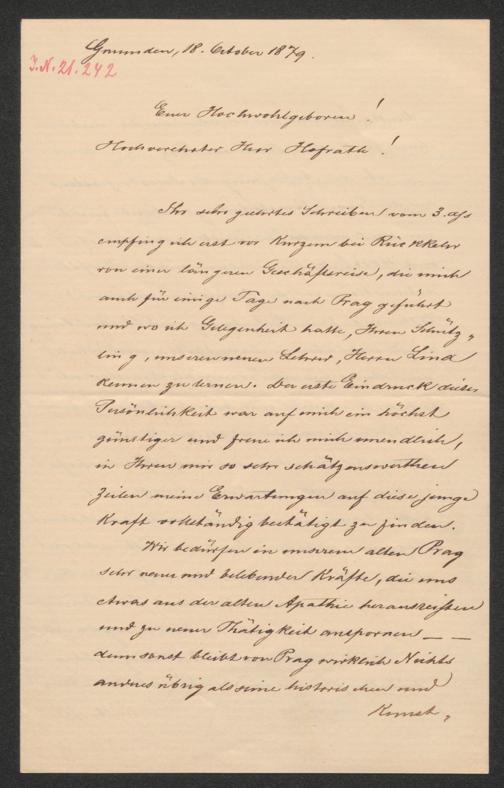 Gmunden, 18. October 1879.
J.N. 21.242
Euer Hochwohlgeboren!
Hochverehrter Herr Hofrath!
Ihr sehr geehrtes Schreiben vom 3. dfs
empfing ich erst vor Kurzem bei Rückkehr
von einer längeren Geschäftsreise, die mich
auch für einige Tage nach Prag geführt
und wo ich Gelegenheit hatte, Ihren Schütz„
ling, unseren neuen Lehrer, Herrn Lind
kennen zu lernen. Der erste Eindruck dieser
Persönlichkeit war auf mich ein höchst
günstiger und freue ich mich unendlich,
in Ihren mir so sehr schätzenswerthen
Zeilen meine Erwartungen auf diese junge
Kraft vollständig bestätigt zu finden.
Wir bedürfen in unserem alten Prag
sehr neuer und belebender Kräfte, die uns
etwas aus der alten Apathie herausreissen
und zu neuer Thätigkeit anspornen — —
denn sonst bleibt von Prag wirklich Nichts
anderes übrig als seine historischen und
Kunst„